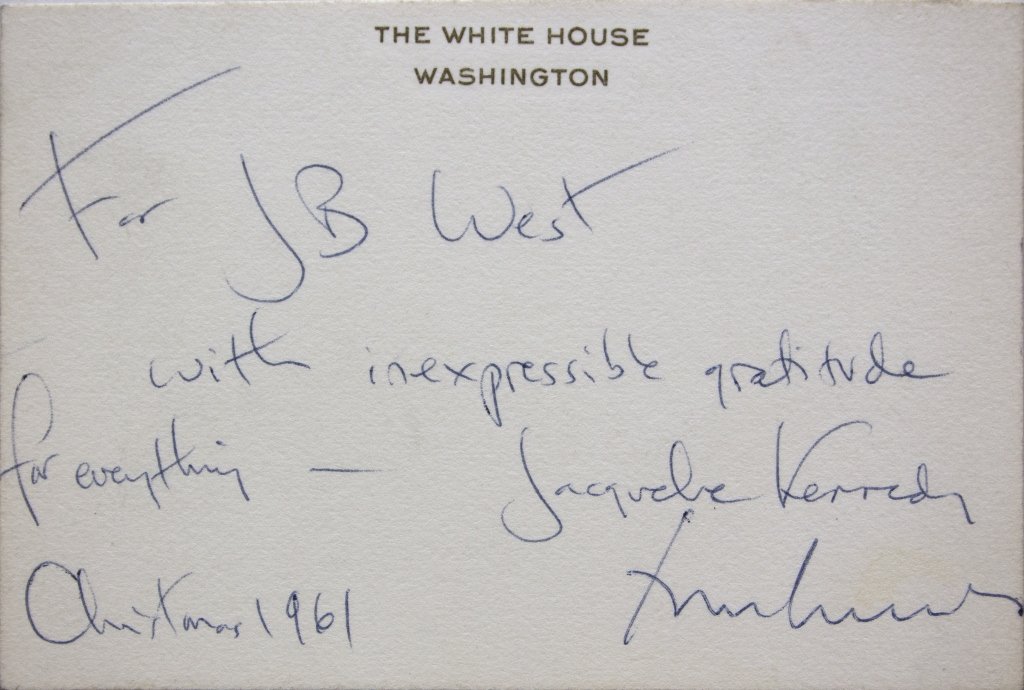 THE WHITE HOUSE
WASHINGTON
For JB West
with inexpressible gratitude
for everything — Jacqueline Kennedy
Christmas 1961